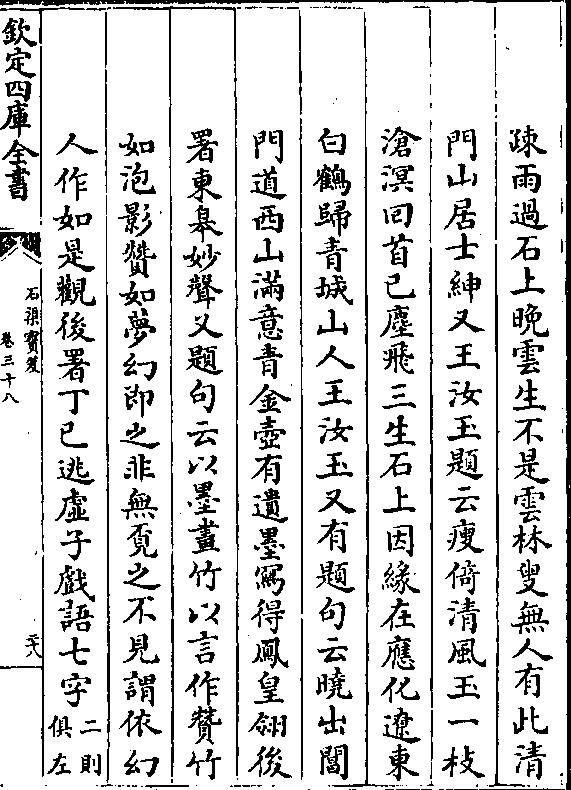 疎雨過石上晚雲生不是雲林叟無人有此清
門山居士紳又王汝玉題云瘦倚清風玉一枝
滄溟回首已塵飛三生石上因緣在應化遼東
白鶴歸青城山人王汝玉又有題句云曉出閶
門道西山滿意青金壺有遺墨寫得鳳皇翎後
署東皋妙聲又題句云以墨畫竹以言作贊竹
如泡影贊如夢幻即之非無覔之不見謂依幻
人作如是觀後署丁巳逃虛子戲語七字二則俱左
欽定四庫全書
石渠寶笈
卷三十八
三八